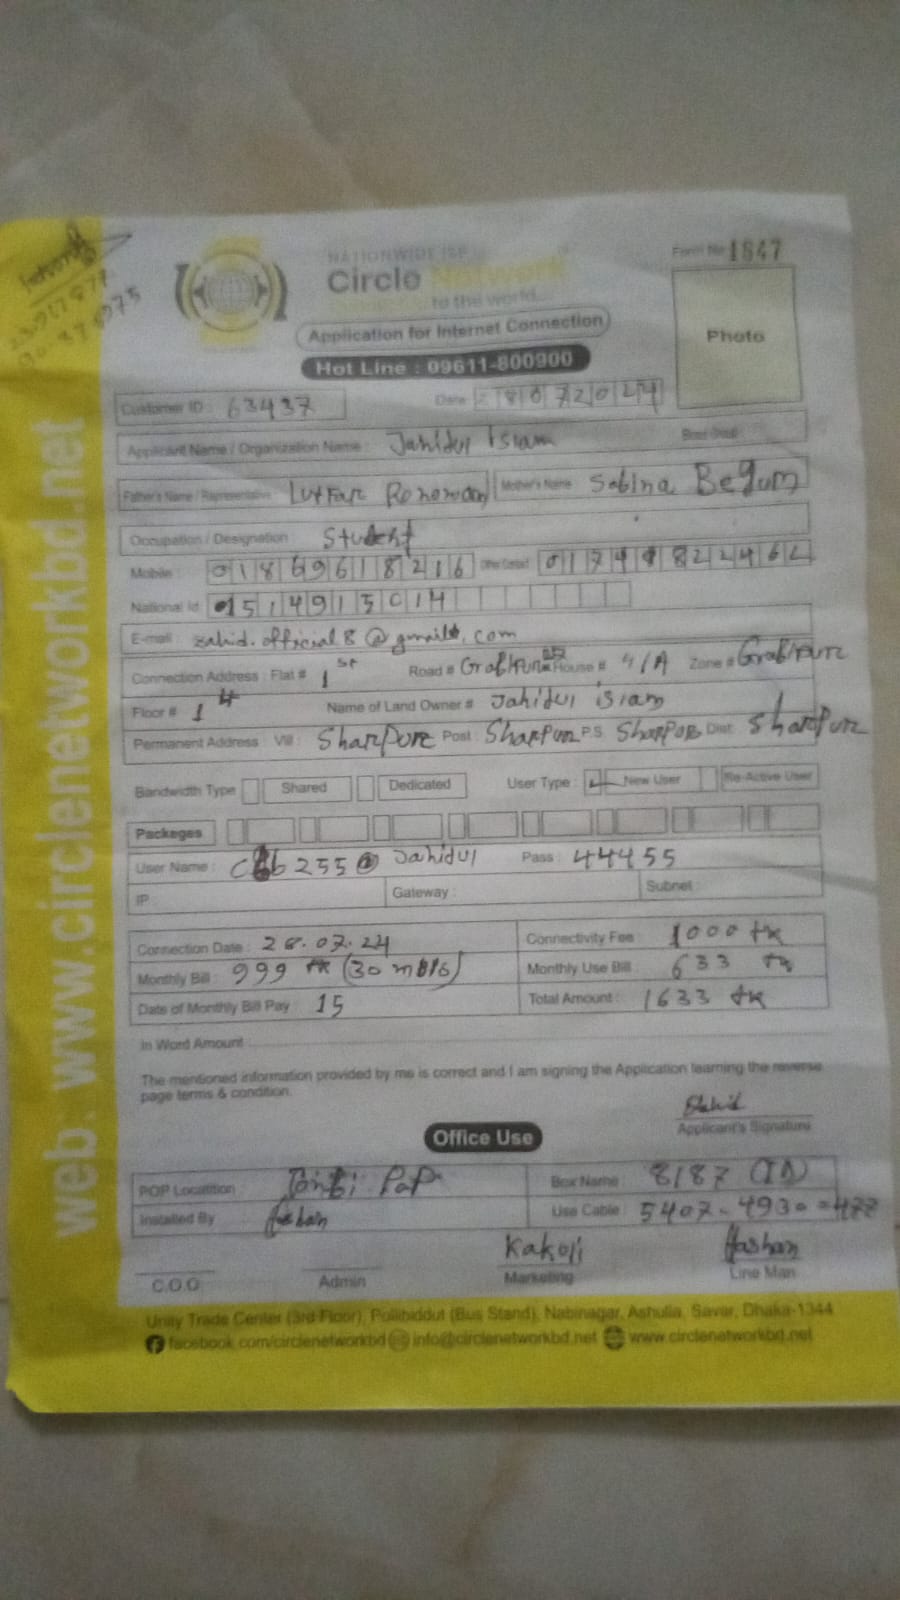 NATIONWIDE ISP
Form No 1647
Circle Network
to the world...
Application for Internet Connection
Photo
Hot Line : 09611-800900
Customer ID : 63437
Date 28072024
Applicant Name / Organization Name : Jahidul islam
Blood Group
Father's Name / Representative Lutfar Rohoman Mother's Name Sabina Begum
Occupation / Designation : Student
Mobile : 01869618216 Other Contact
National Id :
E-mail : zahid.official8@gmail.com
Connection Address : Flat # 1st Road # House # 4/A Zone #
Floor # 1 Name of Land Owner # Jahidul islam
Permanent Address : Vill : Post : P.S Dist:
Bandwidth Type Shared Dedicated User Type : New User Re-Active User
Packeges
User Name : 255@Jahidul Pass : 44455
IP Gateway : Subnet :
Connection Date : 28.07.24 Connectivity Fee 1000 tk
Monthly Bill : 999 tk (30 mbls) Monthly Use Bill : 633 tk
Date of Monthly Bill Pay : 15 Total Amount : 1633 tk
In Word Amount
The mentioned information provided by me is correct and I am signing the Application learning the reverse
page terms & condition.
Applicant's Signature
Office Use
POP Locatition : PoP Box Name : 8187
Installed By Hashan Use Cable : 5407 - 4930 = 477
Kakoli Hashan
C.O.O Admin Marketing Line Man
Unity Trade Center (3rd Floor), Pollibiddut (Bus Stand), Nabinagar, Ashulia, Savar, Dhaka-1344
facebook.com/circlenetworkbd info@circlenetworkbd.net www.circlenetworkbd.net
web : www.circlenetworkbd.net